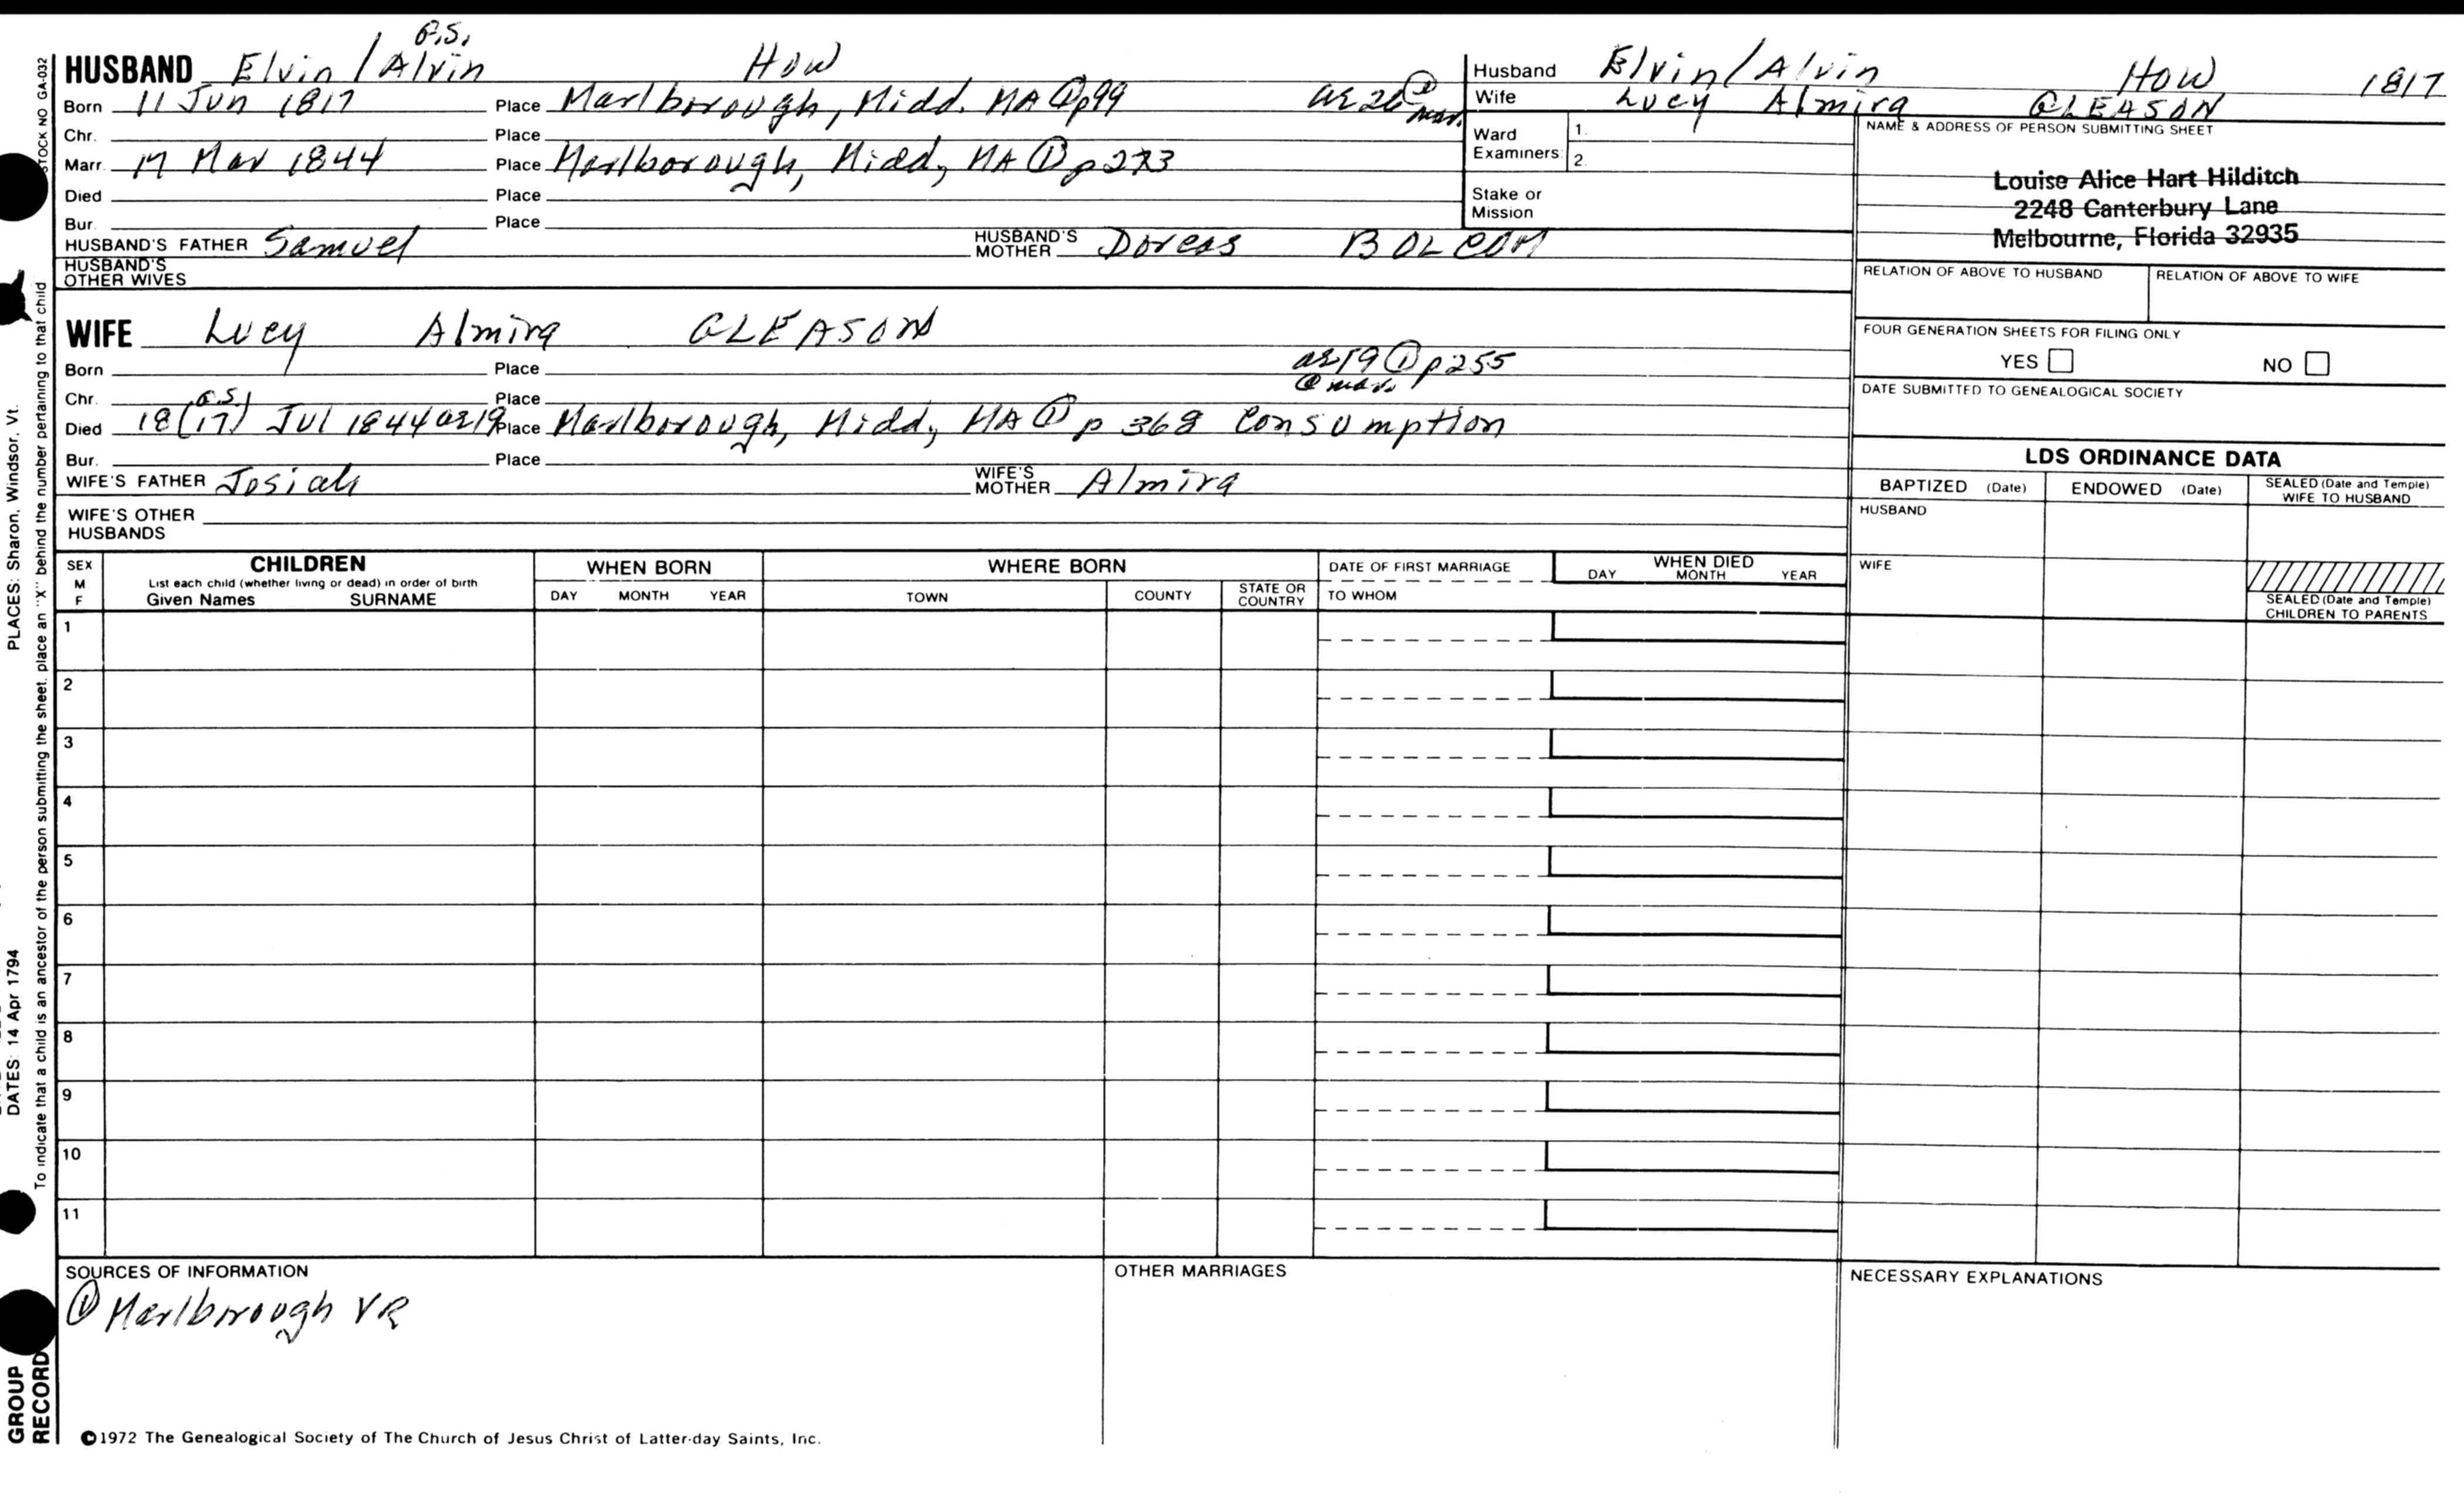 G.S.
HUSBAND Elvin / Alvin HOW
Born 11 Jun 1817 Place Marlborough, Midd. MA ① p99 ae 26 @ mar.
Chr. Place
Marr. 17 Mar 1844 Place Marlborough, Midd, MA ① p273
Died Place
Bur. Place
HUSBAND'S FATHER Samuel HUSBAND'S MOTHER Dorcas BOLCOM
HUSBAND'S OTHER WIVES
WIFE Lucy Almira GLEASON
Born Place ae 19 ① p255
@ mar.
Chr. G.S. Place
Died 18(17) Jul 1844 ae 19 Place Marlborough, Midd, MA ① p 368 Consumption
Bur. Place
WIFE'S FATHER Josiah WIFE'S MOTHER Almira
WIFE'S OTHER HUSBANDS
Husband Elvin / Alvin HOW 1817
Wife Lucy Almira GLEASON
Ward Examiners: 1.
2.
Stake or Mission
NAME & ADDRESS OF PERSON SUBMITTING SHEET
Louise Alice Hart Hilditch
2248 Canterbury Lane
Melbourne, Florida 32935
RELATION OF ABOVE TO HUSBAND RELATION OF ABOVE TO WIFE
FOUR GENERATION SHEETS FOR FILING ONLY
YES NO
DATE SUBMITTED TO GENEALOGICAL SOCIETY
LDS ORDINANCE DATA
BAPTIZED (Date) ENDOWED (Date) SEALED (Date and Temple) WIFE TO HUSBAND
HUSBAND
WIFE
SEALED (Date and Temple)
CHILDREN TO PARENTS
SEX M F
CHILDREN
List each child (whether living or dead) in order of birth
Given Names SURNAME
WHEN BORN
DAY MONTH YEAR
WHERE BORN
TOWN COUNTY STATE OR COUNTRY
DATE OF FIRST MARRIAGE
TO WHOM
WHEN DIED
DAY MONTH YEAR
1
2
3
4
5
6
7
8
9
10
11
SOURCES OF INFORMATION
① Marlborough VR
OTHER MARRIAGES
NECESSARY EXPLANATIONS
©1972 The Genealogical Society of The Church of Jesus Christ of Latter-day Saints, Inc.
STOCK NO GA-032
To indicate that a child is an ancestor of the person submitting the sheet, place an "X" behind the number pertaining to that child
PLACES: Sharon, Windsor, Vt.
DATES: 14 Apr 1794
GROUP
RECORD